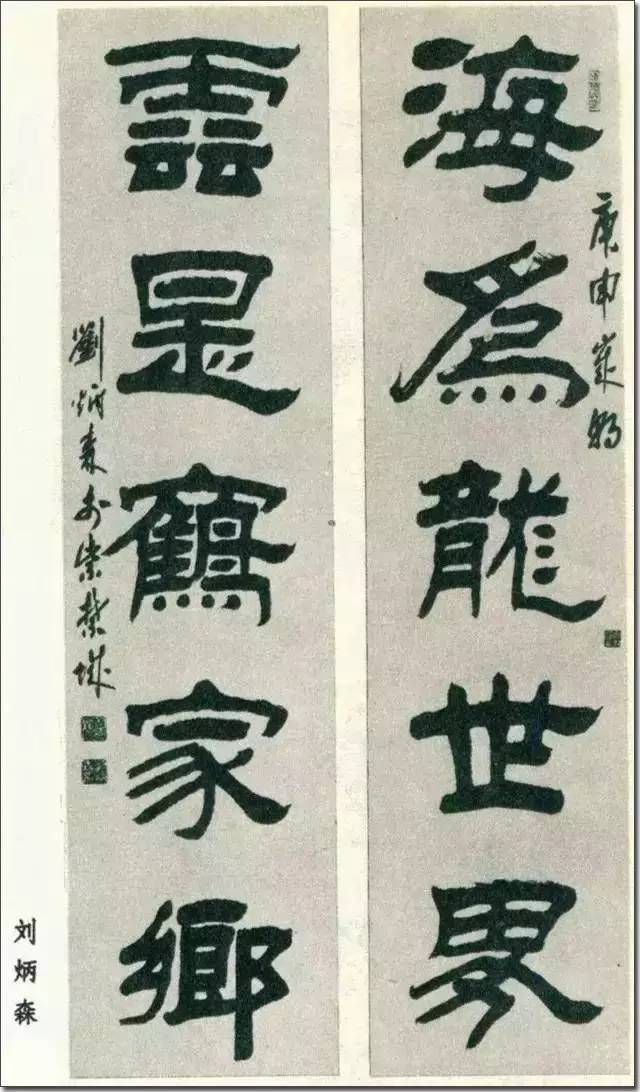 庚申歲朝
海為龍世界
雲是鶴家鄉
劉炳森於紫禁城
刘炳森